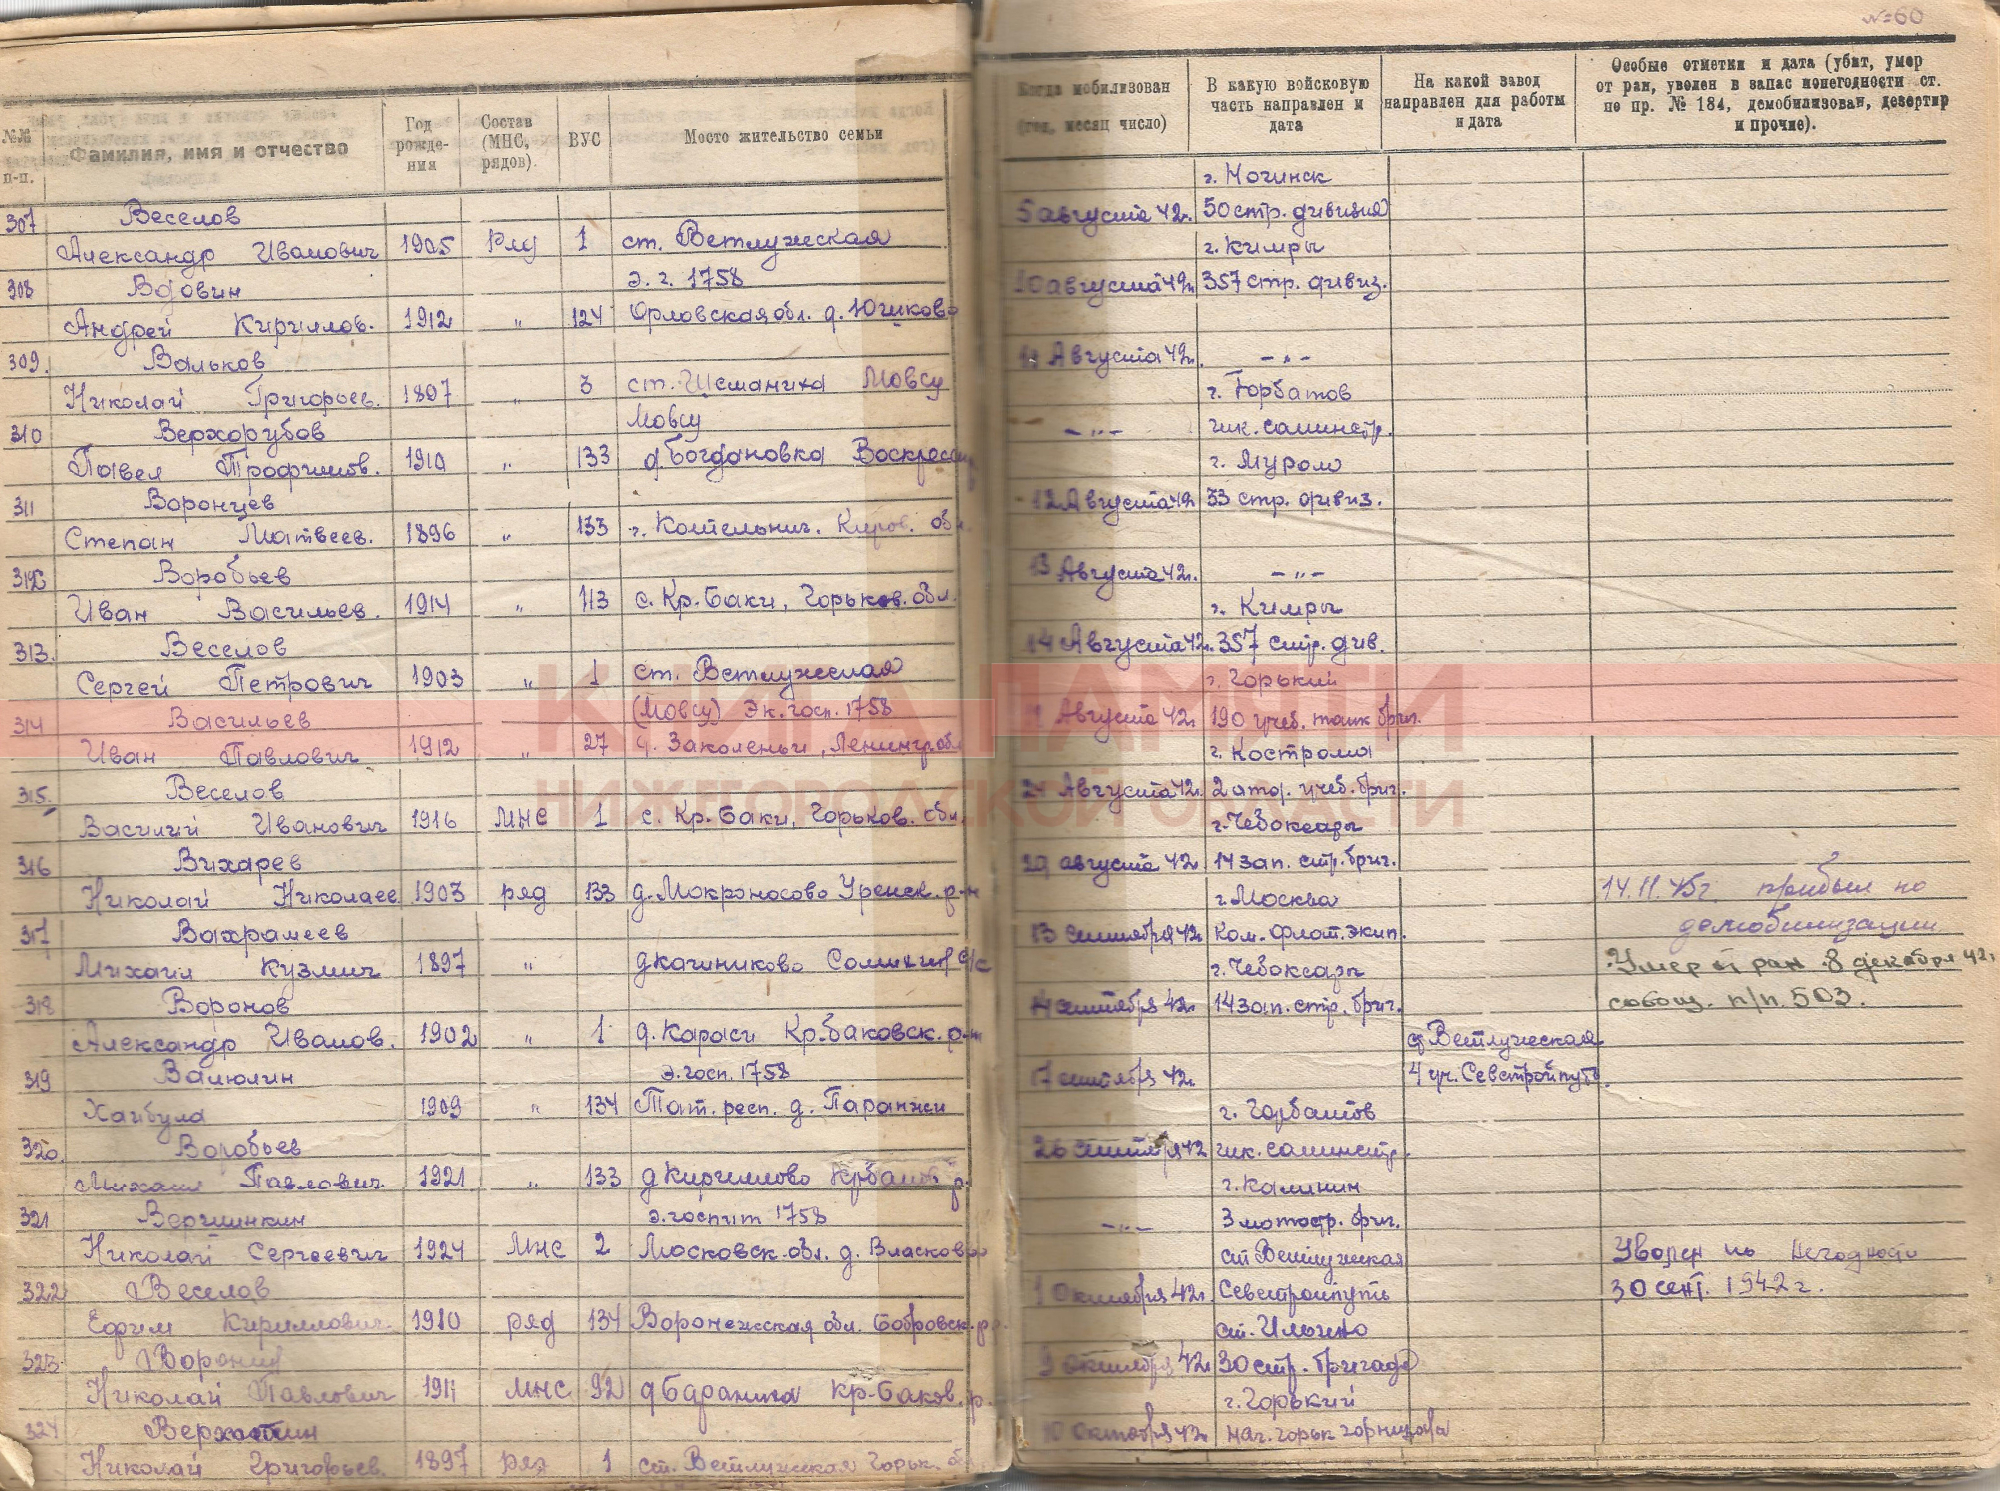 №№ п-п.
Фамилия, имя и отчество
Год рождения
Состав (МНС, рядов).
ВУС
Место жительство семьи
307 Веселов
Александр Иванович 1905 Ряд 1 ст. Ветлужская
308 Вдовин э. г. 1758
Андрей Кириллов. 1912 „ 124 Орловская обл. д. Юшково
309. Вальков
Николай Григорьев. 1897 „ 3 ст. Шеманиха Мовсу
310 Верхорубов Мовсу
Павел Трофимов. 1910 „ 133 д. Богдановка
311 Воронцев
Степан Матвеев. 1896 „ 133 г. Котельнич. Киров. обл.
312 Воробьев
Иван Васильев. 1914 „ 113 с. Кр. Баки, Горьков. обл.
313. Веселов
Сергей Петрович 1903 „ 1 ст. Ветлужская
314 Васильев (Мовсу) Эк. госп. 1758
Иван Павлович 1912 „ 27 Ленингр. обл
315. Веселов
Василий Иванович 1916 МНС 1 с. Кр. Баки, Горьков. обл.
316 Вихарев
Николай Николаев 1903 ряд 133 д. Мокроносово Уренск. р-н
317 Вахрамеев
Михаил Кузмич 1897 „ с/с
318 Воронов
Александр Иванов. 1902 „ 1 д. Караси Кр. баковск. р-н
319 Валюлин э. госп. 1758
Хайбула 1909 „ 134 Тат. респ. д. Паранжи
320. Воробьев
Михаил Павлович 1921 „ 133 д Кириллово
321 Вершинкин э. госпит 1758
Николай Сергеевич 1924 Мнс 2 Московск. обл. д. Власково
322 Веселов
Ефим Кириллович. 1910 ряд 134 Воронежская обл. Бобровск. р
323. Воронин
Николай Павлович 1911 МНС 92 д Бараниха Кр-Баков. р.
324 Верхоткин
Николай Григорьев. 1897 ряд 1 ст. Ветлужская Горьк. об
№ 60
Когда мобилизован (год, месяц число)
В какую войсковую часть направлен и дата
На какой завод направлен для работы и дата
Особые отметки и дата (убит, умер от ран, уволен в запас понегодности ст. по пр. № 184, демобилизован, дезертир и прочие).
г. Ногинск
5 августа 42г. 50 стр. дивизия
г. Кимры
10 августа 42г. 357 стр. дивиз.
Августа 42г. – „ –
г. Горбатов
– „ –
г. Муром
12 Августа 42 33 стр. дивиз.
13 Августа 42г. – „ –
г. Кимры
14 Августа 42г. 357 стр. див.
г. Горький
Августа 42г. 190 учеб. танк бриг.
г. Кострома
Августа 42г. 2 учеб. бриг.
г. Чебоксары
29 августа 42 14 зап. стр. бриг.
г. Москва 14.11.45г. прибыл по
13 сентября 42 Ком. флот. экип. демобилизации
г. Чебоксары Умер от ран 8 декабря 42г
14 сентября 42г. 14 зап. стр. бриг. сообщ. п/п. 503.
ст Ветлужская
17 сентября 42г. 4 уч. Севстройпуть.
г. Горбатов
26 сентября 42
г. Калинин
– „ – 3 мотостр. бриг.
ст Ветлужская Уволен по негодности
1 Октября 42г. Севстройпуть 30 сент. 1942 г.
ст. Ильино
9 октября 42г 30 стр. бригада
г. Горький
10 октября 42г.
КНИГА ПАМЯТИ
НИЖЕГОРОДСКОЙ ОБЛАСТИ